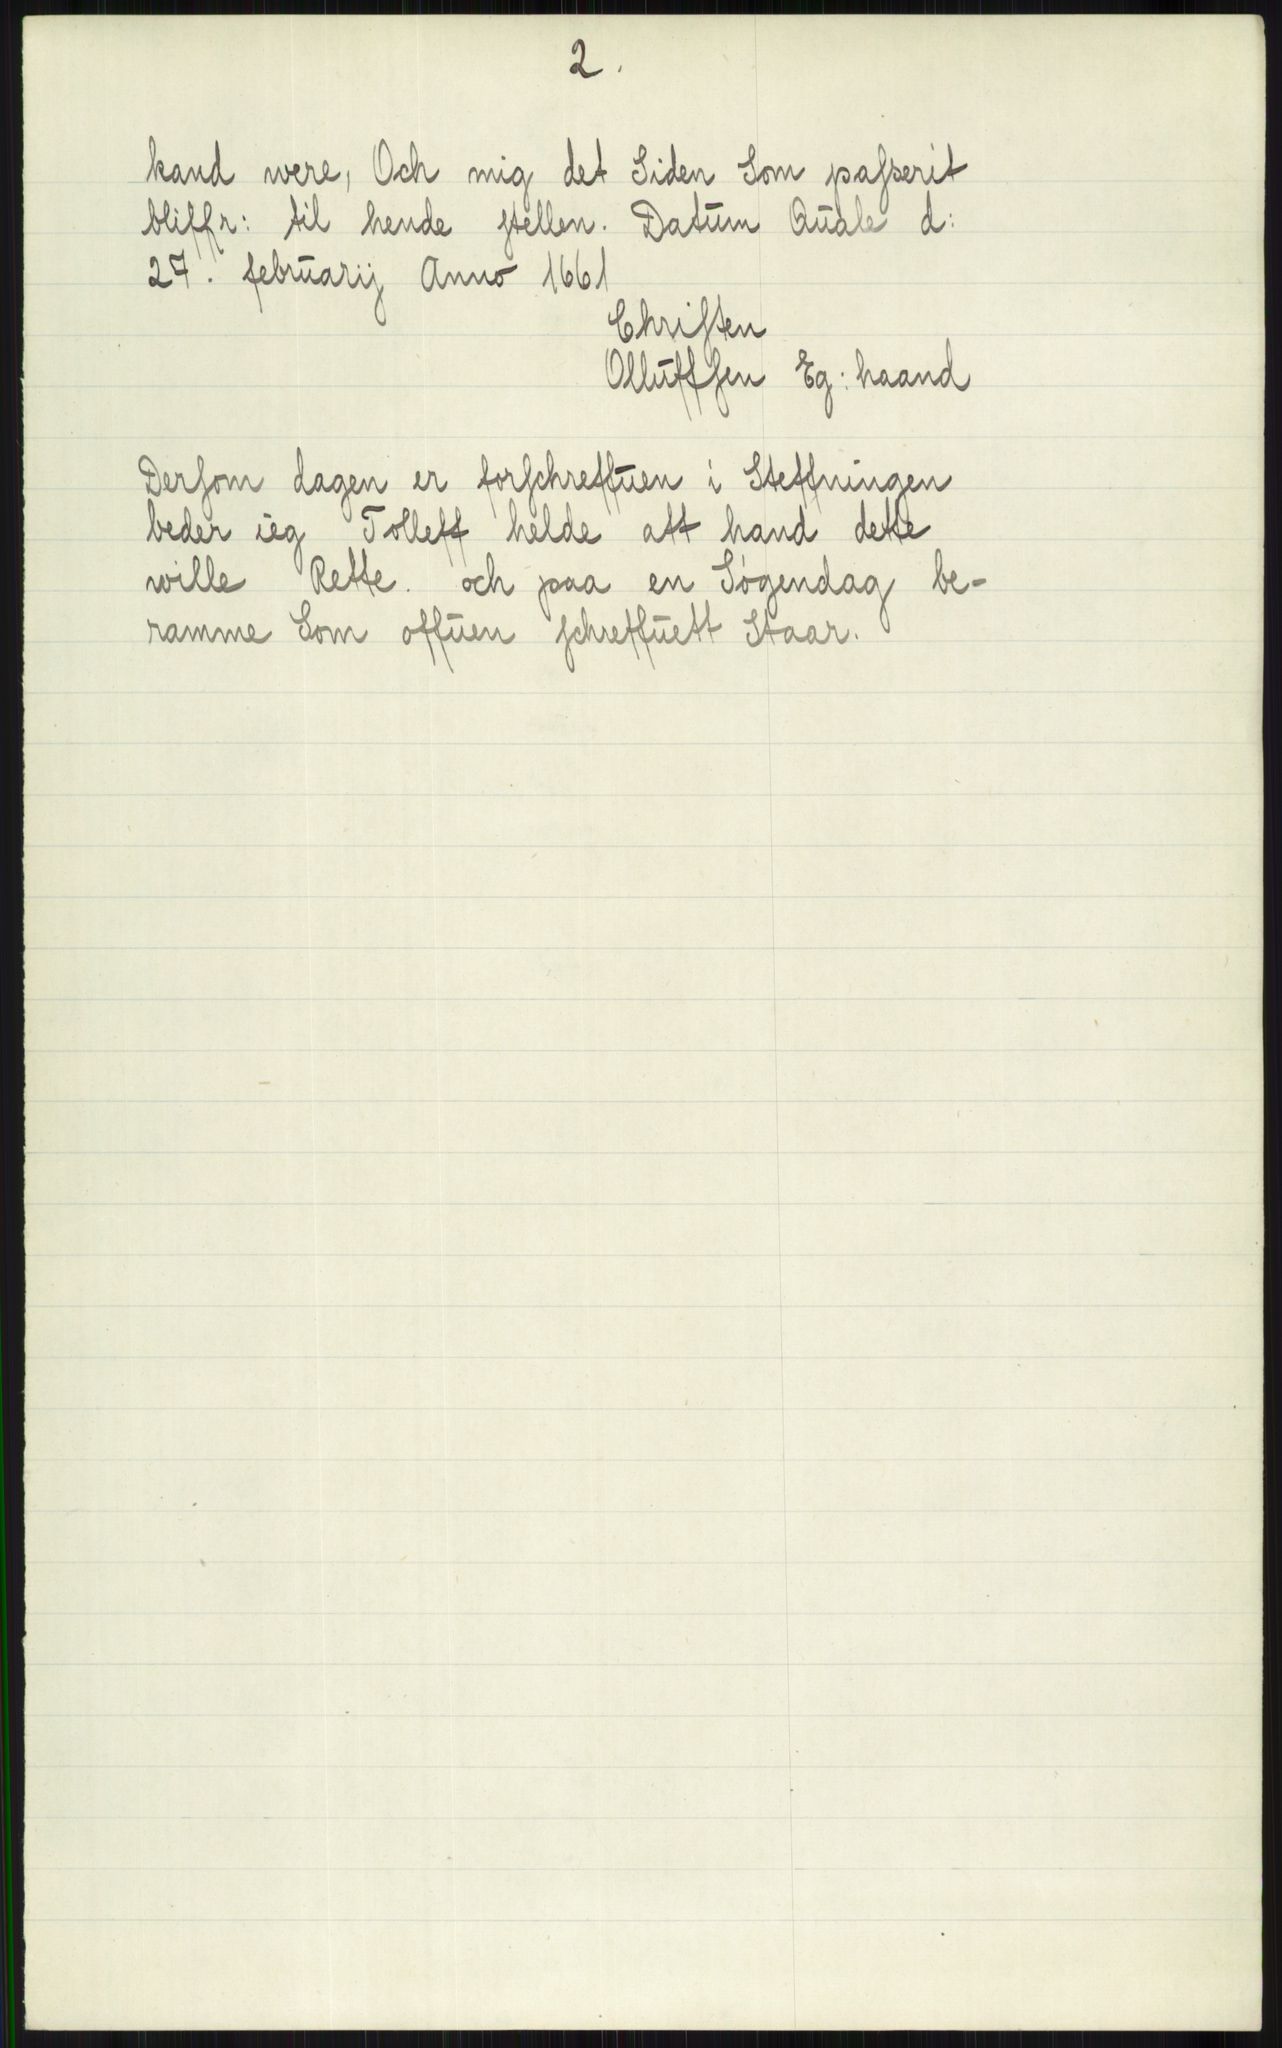 2.
kand were, Och mig det Siden Som paſserit
bliffr: til hende ſtellen. Datum Quale d:
27. februarij Anno 1661
Chriſten
Olluffſen Eg: haand
Derſom dagen er forſchreffuen i Steffningen
beder ieg Tolleff helde att hand dette
wille Rette. och paa en Søgendag be-
ramme Som offuen ſchreffuett Staar.